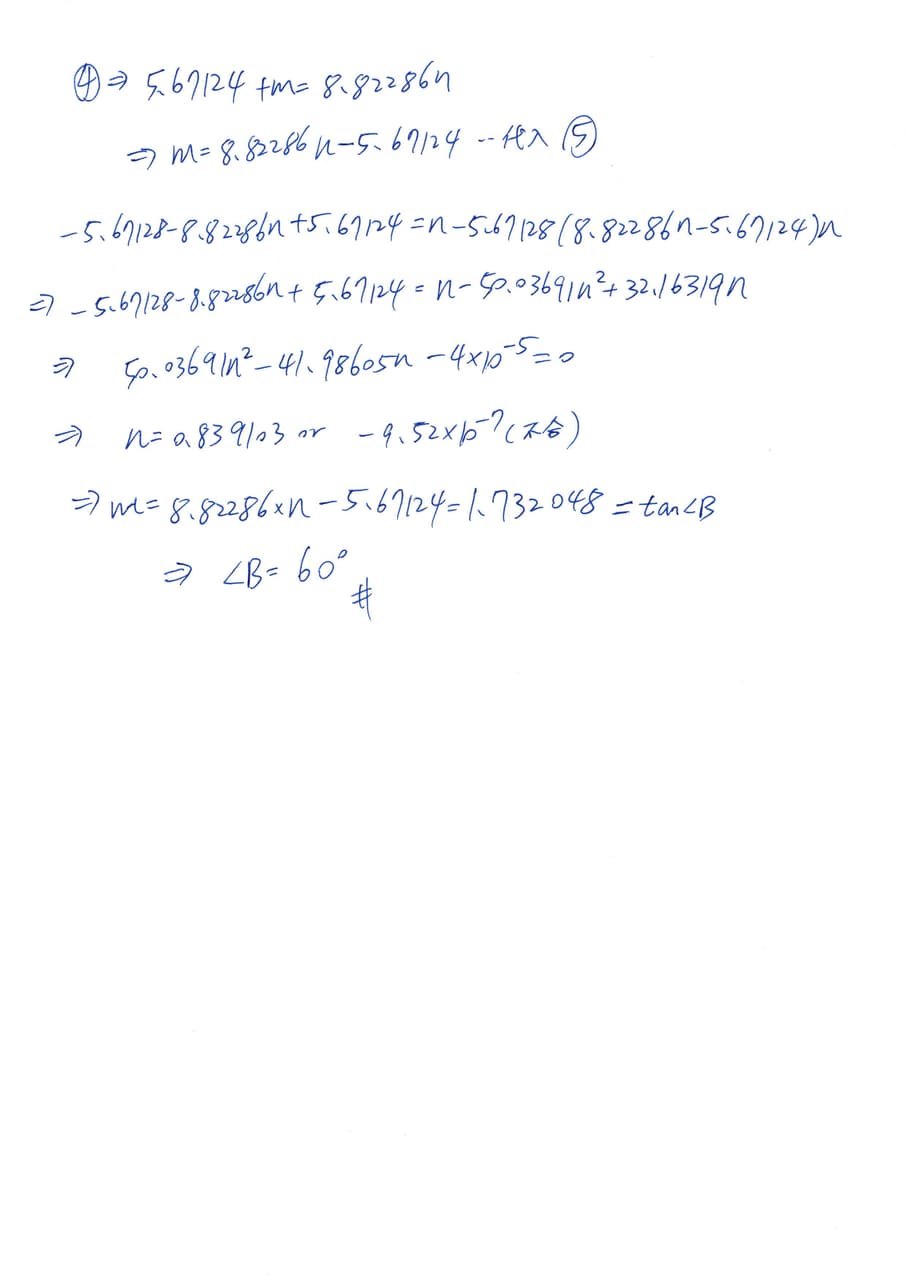 ④ ⇒ 5.67124 + m = 8.82286n
⇒ m = 8.82286n - 5.67124 -- 代入 ⑤
- 5.67128 - 8.82286n + 5.67124 = n - 5.67128 (8.82286n - 5.67124) n
⇒ - 5.67128 - 8.82286n + 5.67124 = n - 50.03691n² + 32.16319n
⇒ 50.03691n² - 41.98605n - 4×10⁻⁵ = 0
⇒ n = 0.839103 or -9.52×10⁻⁷ (不合)
⇒ m = 8.82286×n - 5.67124 = 1.732048 = tan∠B
⇒ ∠B = 60° #